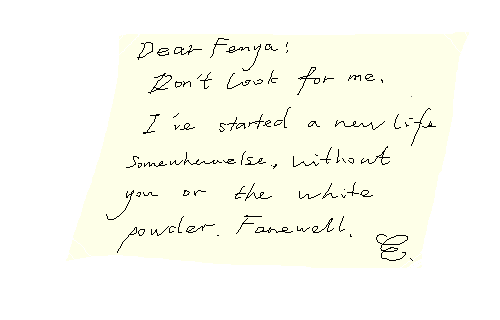 Dear Fenya!
Don't look for me.
I've started a new life
somewhere else, without
you or the white
powder. Farewell.
E.